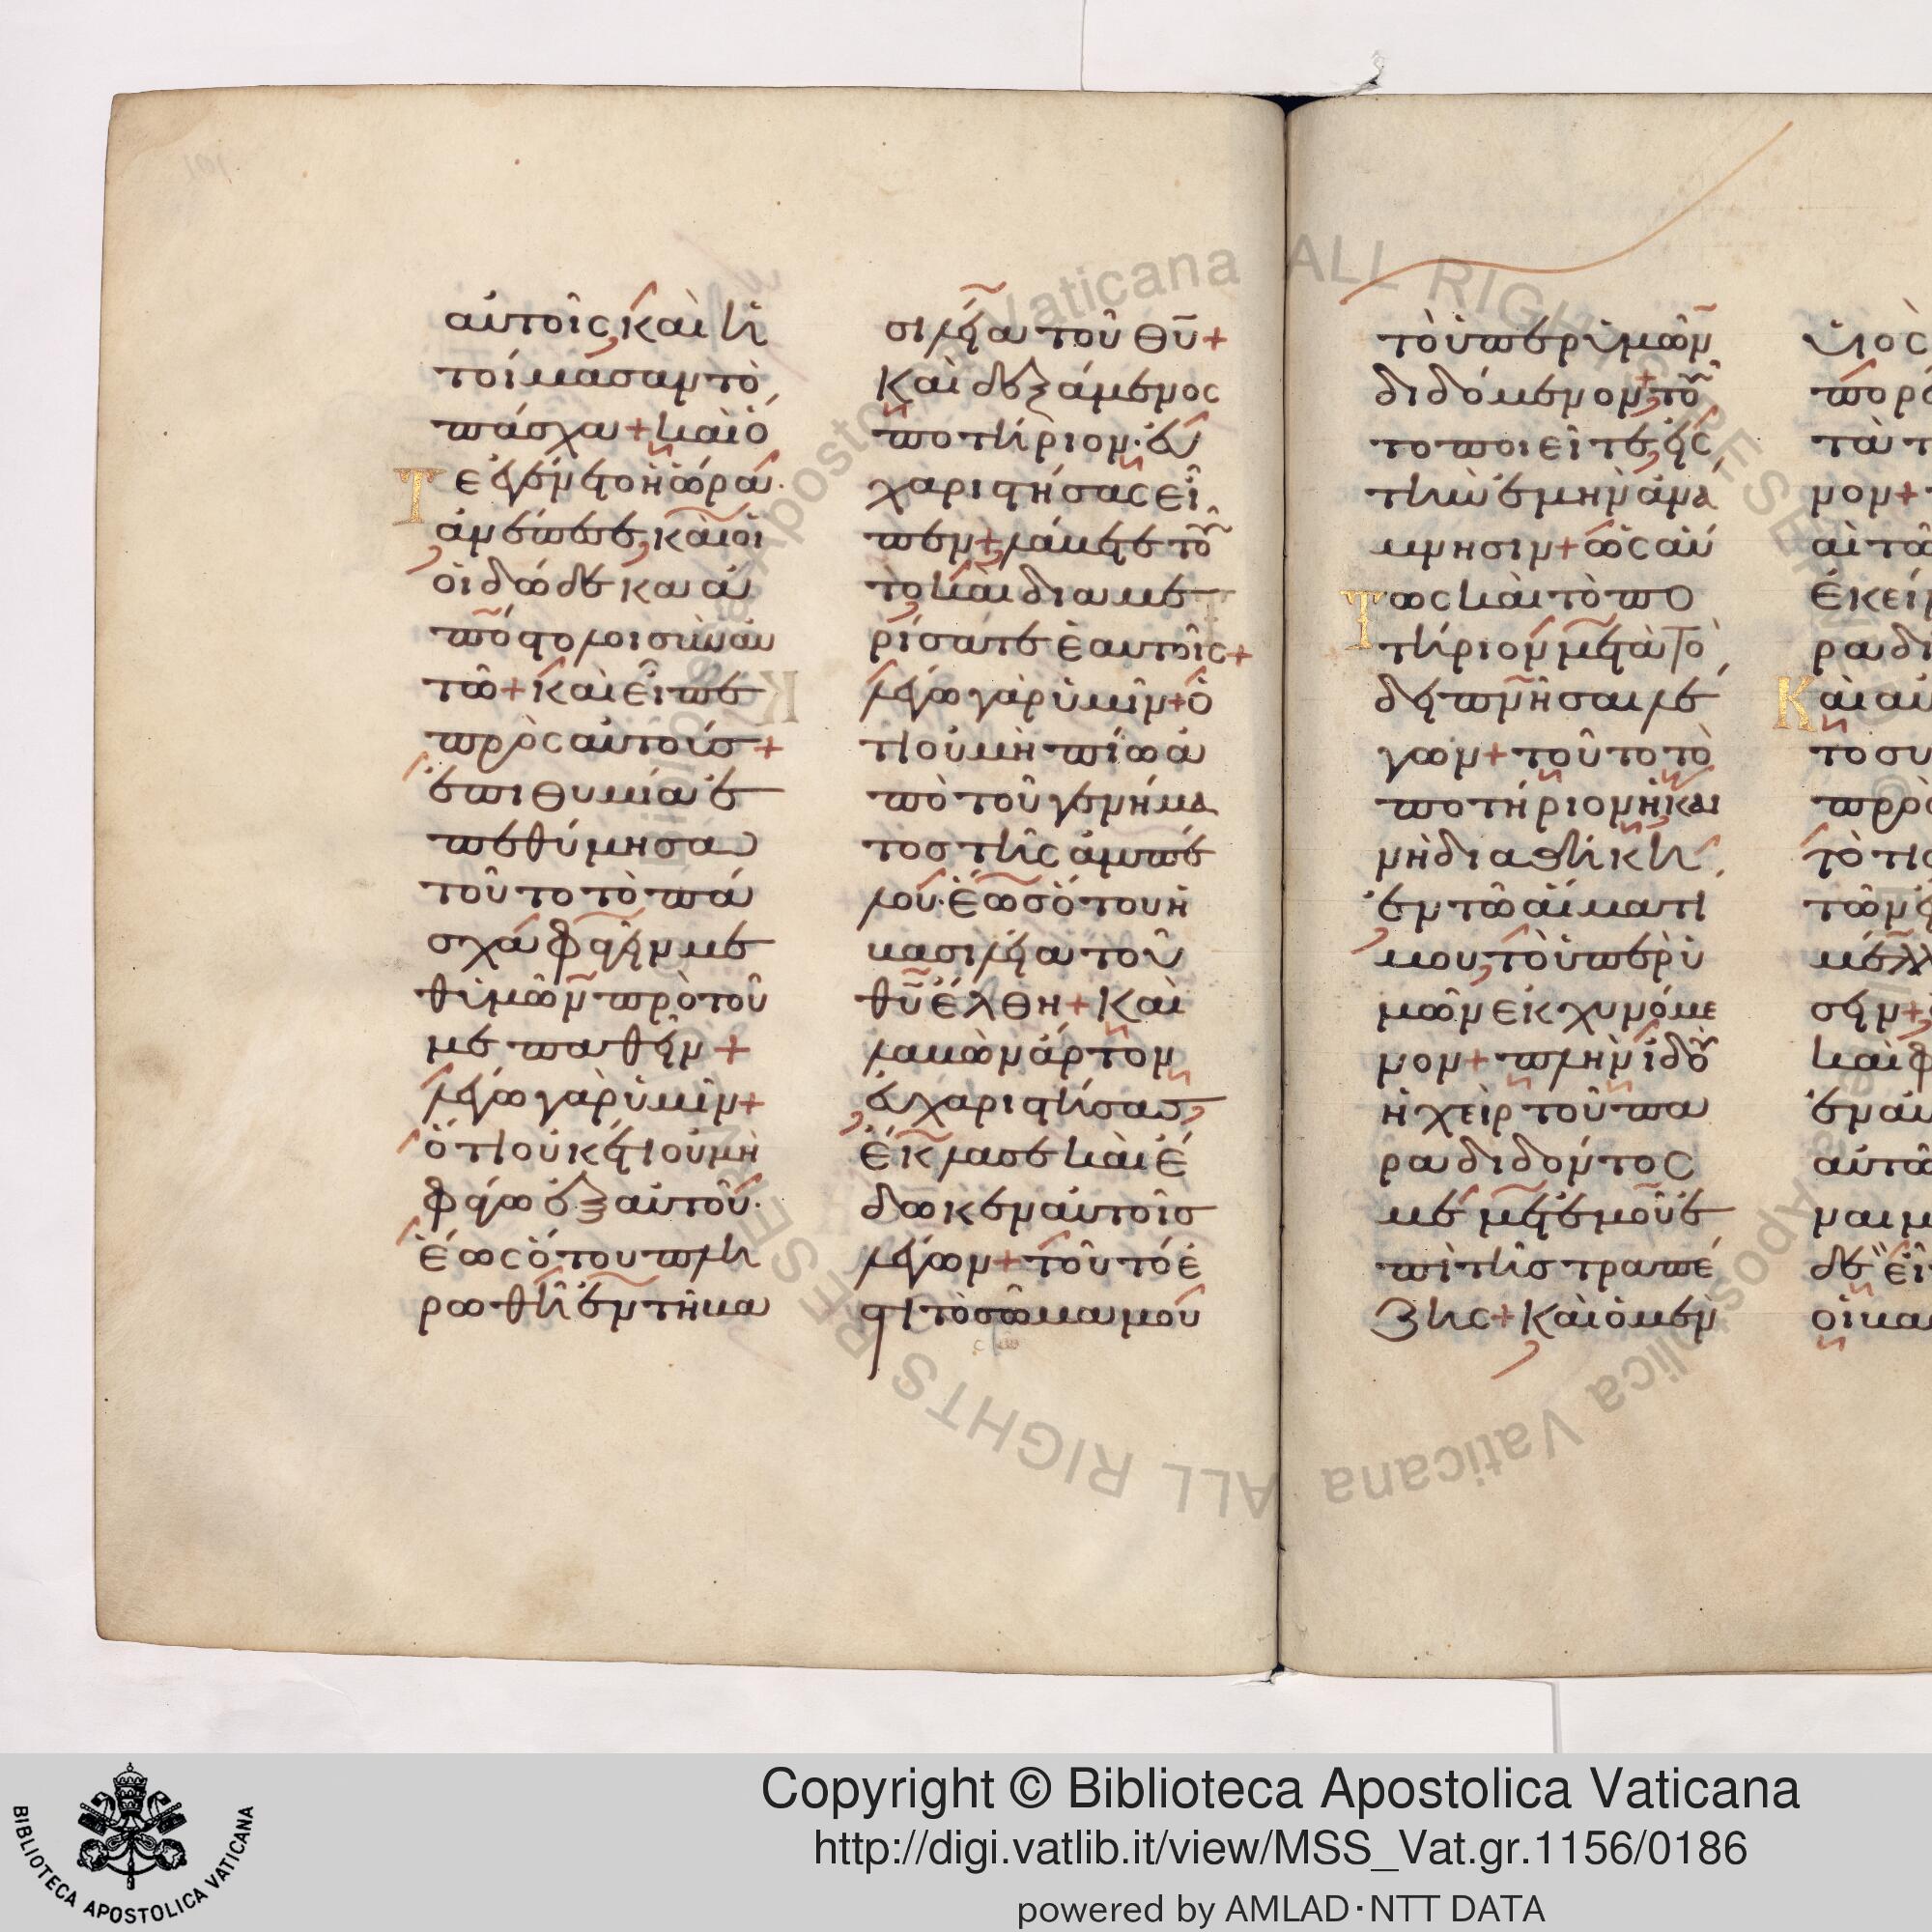 αὐτοῖς, καὶ ἡ
τοίμασαν τὸ
πάσχα + καὶ ὅ
Τε ἐγένετο ἡ ὥρα.
ἀνέπεσε, καὶ οἱ
οἱ δώδεκα ἀ
πόστολοι σὺν αὐ
τῶ + καὶ εἶπε
πρὸς αὐτούς +
ἐπιθυμία ἐ
πεθύμησα
τοῦτο τὸ πά
σχα φαγεῖν με
θ' ὑμῶν πρὸ τοῦ
με παθεῖν +
λέγω γὰρ ὑμῖν +
ὅτι οὐκέτι οὐ μὴ
φάγω ἐξ αὐτοῦ.
ἕως ὅτου πλη
ρωθῆ ἐν τῆ βα
σιλεία τοῦ θῦ +
Καὶ δεξάμενος
ποτήριον· εὐ
χαριστήσας εἶ
πεν + λάβετε τοῦ
το καὶ διαμε
ρίσατε ἑαυτοῖς +
λέγω γὰρ ὑμῖν + ὅ
τι οὐ μὴ πίω ἀ
πὸ τοῦ γενήμα
τος τῆς ἀμπέ
λου· ἕως ὅτου ἡ
βασιλεία τοῦ
θῦ ἔλθη + Καὶ
λαβὼν ἄρτον
εὐχαριστήσας,
ἔκλασε καὶ ἔ
δωκεν αὐτοῖς
λέγων + τοῦτό ἐ
στι τὸ σῶμα μου
τὸ ὑπὲρ ὑμῶν
διδόμενον + τοῦ
το ποιεῖτε εἰς
τὴν ἐμὴν ἀνά
μνησιν + ὡσαύ
Τως καὶ τὸ πο
τήριον μετὰ τὸ
δειπνῆσαι λέ
γων + τοῦτο τὸ
ποτήριον ἡ και
νὴ διαθήκη,
ἐν τῶ αἵματί
μου, τὸ ὑπὲρ ὑ
μῶν ἐκχυνόμε
νον + πλὴν ἰδοῦ
ἡ χεὶρ τοῦ πα
ραδιδόντος
με μετ' ἐμοῦ ἐ
πὶ τῆς τραπέ
ζης + Καὶ ὁ μὲν
ὑιὸς
πορε
τὰ τ
νον +
αὶ τῶ
ἐκεί
ραδι
Καὶ αὐ
το συ
πρὸ
τὸ τί
τῶν
μέλλ
σειν +
καὶ φ
ἐν αὐ
αὐτῶ
ναι μ
δὲ εἶ
οἱ βα
101
ALL RIGHTS RESERVED
© Biblioteca Apostolica Vaticana
Copyright © Biblioteca Apostolica Vaticana
http://digi.vatlib.it/view/MSS_Vat.gr.1156/0186
powered by AMLAD·NTT DATA
BIBLIOTECA APOSTOLICA VATICANA